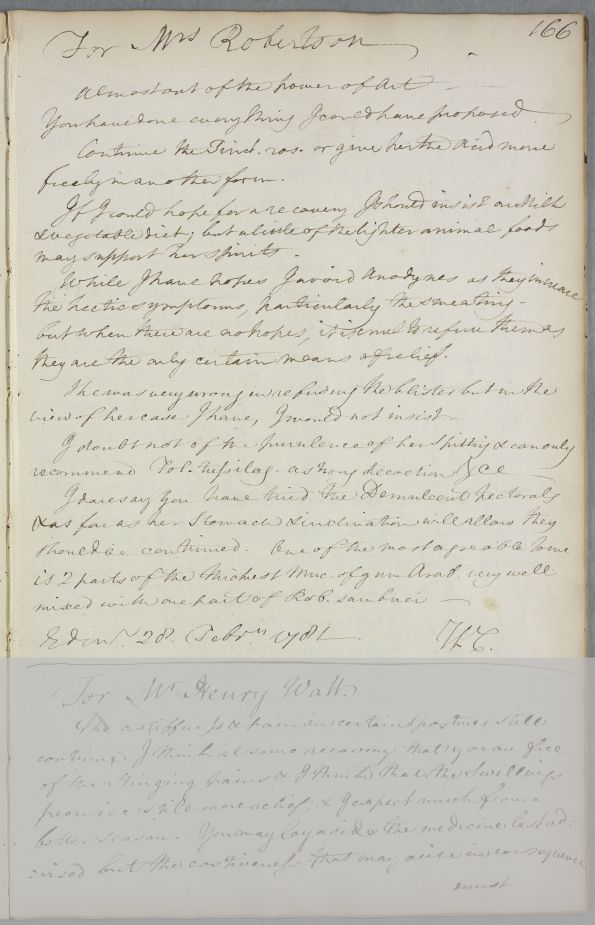 166
For Mrs Robertson
Almost out of the power of Art
You have done every thing I could have proposed
Continue the Tinct. ros. or give her the acid more
freely in another form.
If I could hope for a recovery I should insist on Milk
& vegetable diet; but a little of the lighter animal foods
may support her spirits.
While I have hopes I avoid Anodynes as they increase
the hectic symptoms, particularly the sweating -
but when there are no hopes, it is cruel to refuse them as
they are the only certain means of relief.
She was very wrong in refusing the blister but in the
view of her case I have, I would not insist
I doubt not of the purulence of her Spitting & can only
recommend Fol. tussilag. a strong decoction &ce
I dare say you have tried the Demulcent pectorals
& as far as her Stomach & inclination will allow they
should be continued. One of the most agreeable to me
is 2 parts of the thickest Muc. of gum Arab. very well
mixed with one part of Rob. sambuci
Edinr. 28. Febry 1781 W.C.
For Mr. Henry Watt.
Tho a stiffness & pain in certain postures still
continue I think it some recovery that you are free
of the stinging pains & I think that the Swellings
promise still more relief, & I expect much from a
better season. You may lay aside the medicine last ad:
:vised but the costiveness that may arise in consequence
must